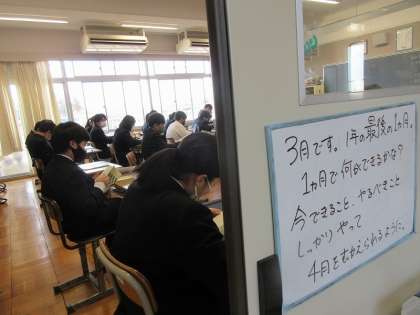 3月です。1年の最後の1ヵ月。
1ヵ月で何ができるかな?
今できること、やるべきこと
しっかりやって
4月をむかえられるように。